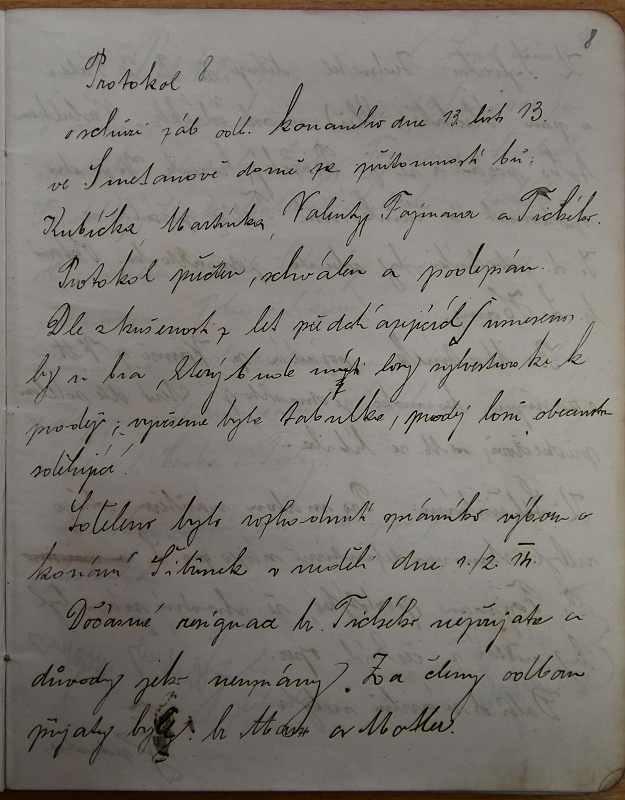 8
Protokol 8
o schůzi záb. odb. konaného dne 13. list. 13.
ve Smetanově domě za přítomnosti bů:
Kubíčka, Martínka, Valenty, Fajmana a Tichého.
Protokol přečten, schválen a podepsán.
Dle zkušenosti z let předcházejících usneseno
by u bra, který bude míti losy sylvestrovské k
prodeji, vyvěšena byla tabulka, prodej losů obecenstvu
sdělující.
Sděleno bylo rozhodnutí správního výboru o
konání Šibřinek v neděli dne 1./2. 14.
Dočasné resignace br. Tichého nepřijata a
důvody jeho neuznány. Za členy odboru
přijaty byli: br. a